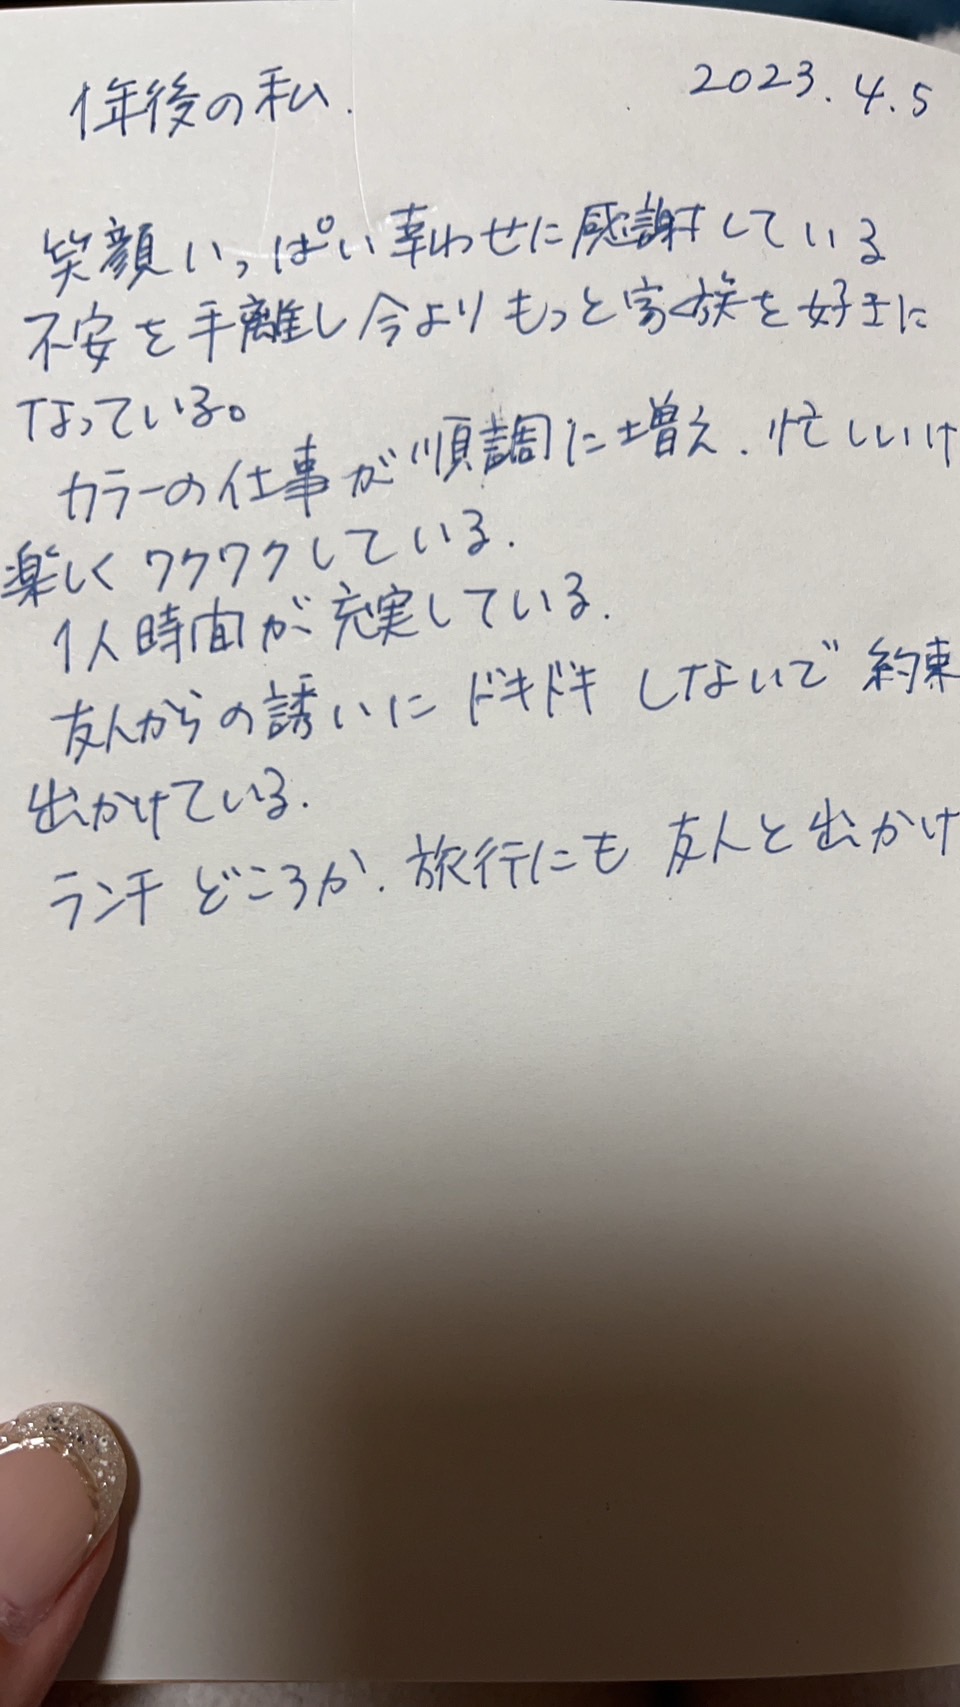 1年後の私.
2023.4.5
笑顔いっぱい幸わせに感謝している
不安を手離し今よりもっと家族を好きに
なっている。
カラーの仕事が順調に増え、忙しいけ
楽しくワクワクしている.
1人時間が充実している.
友人からの誘いにドキドキしないで約束
出かけている.
ランチどころか、旅行にも友人と出かけ